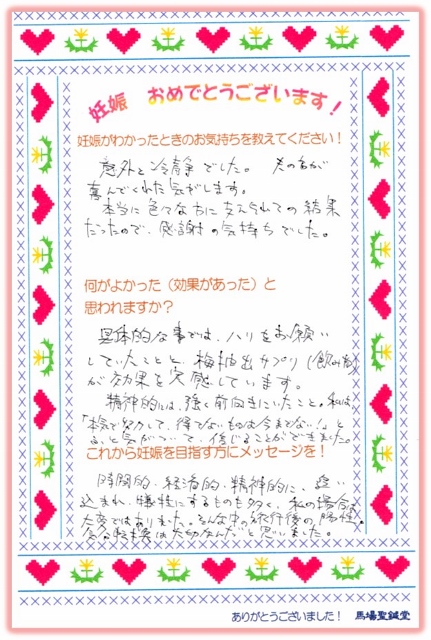 妊娠 おめでとうございます！
妊娠がわかったときのお気持ちを教えてください！
意外と冷静でした。 夫の方が
喜んでくれた気がします。
本当に色々な方に支えられての結果
だったので、感謝の気持ちでした。
何がよかった（効果があった）と
思われますか？
具体的な事では、ハリをお願い
していたことと、梅抽出サプリ（飲み
が効果を実感しています。
精神的には、強く前向きにいたこと。私は
「本気で努力して、得てないものは今までない！」と
ふと気がついて、信じることができました。
これから妊娠を目指す方にメッセージを！
時間的・経済的・精神的に、追い
込まれ、犠牲にするものも多く、私の場合
大変ではありました。そんな中の旅行後の陽性。
転換は大切なんだと思いました。
ありがとうございました！ 馬場聖鍼堂